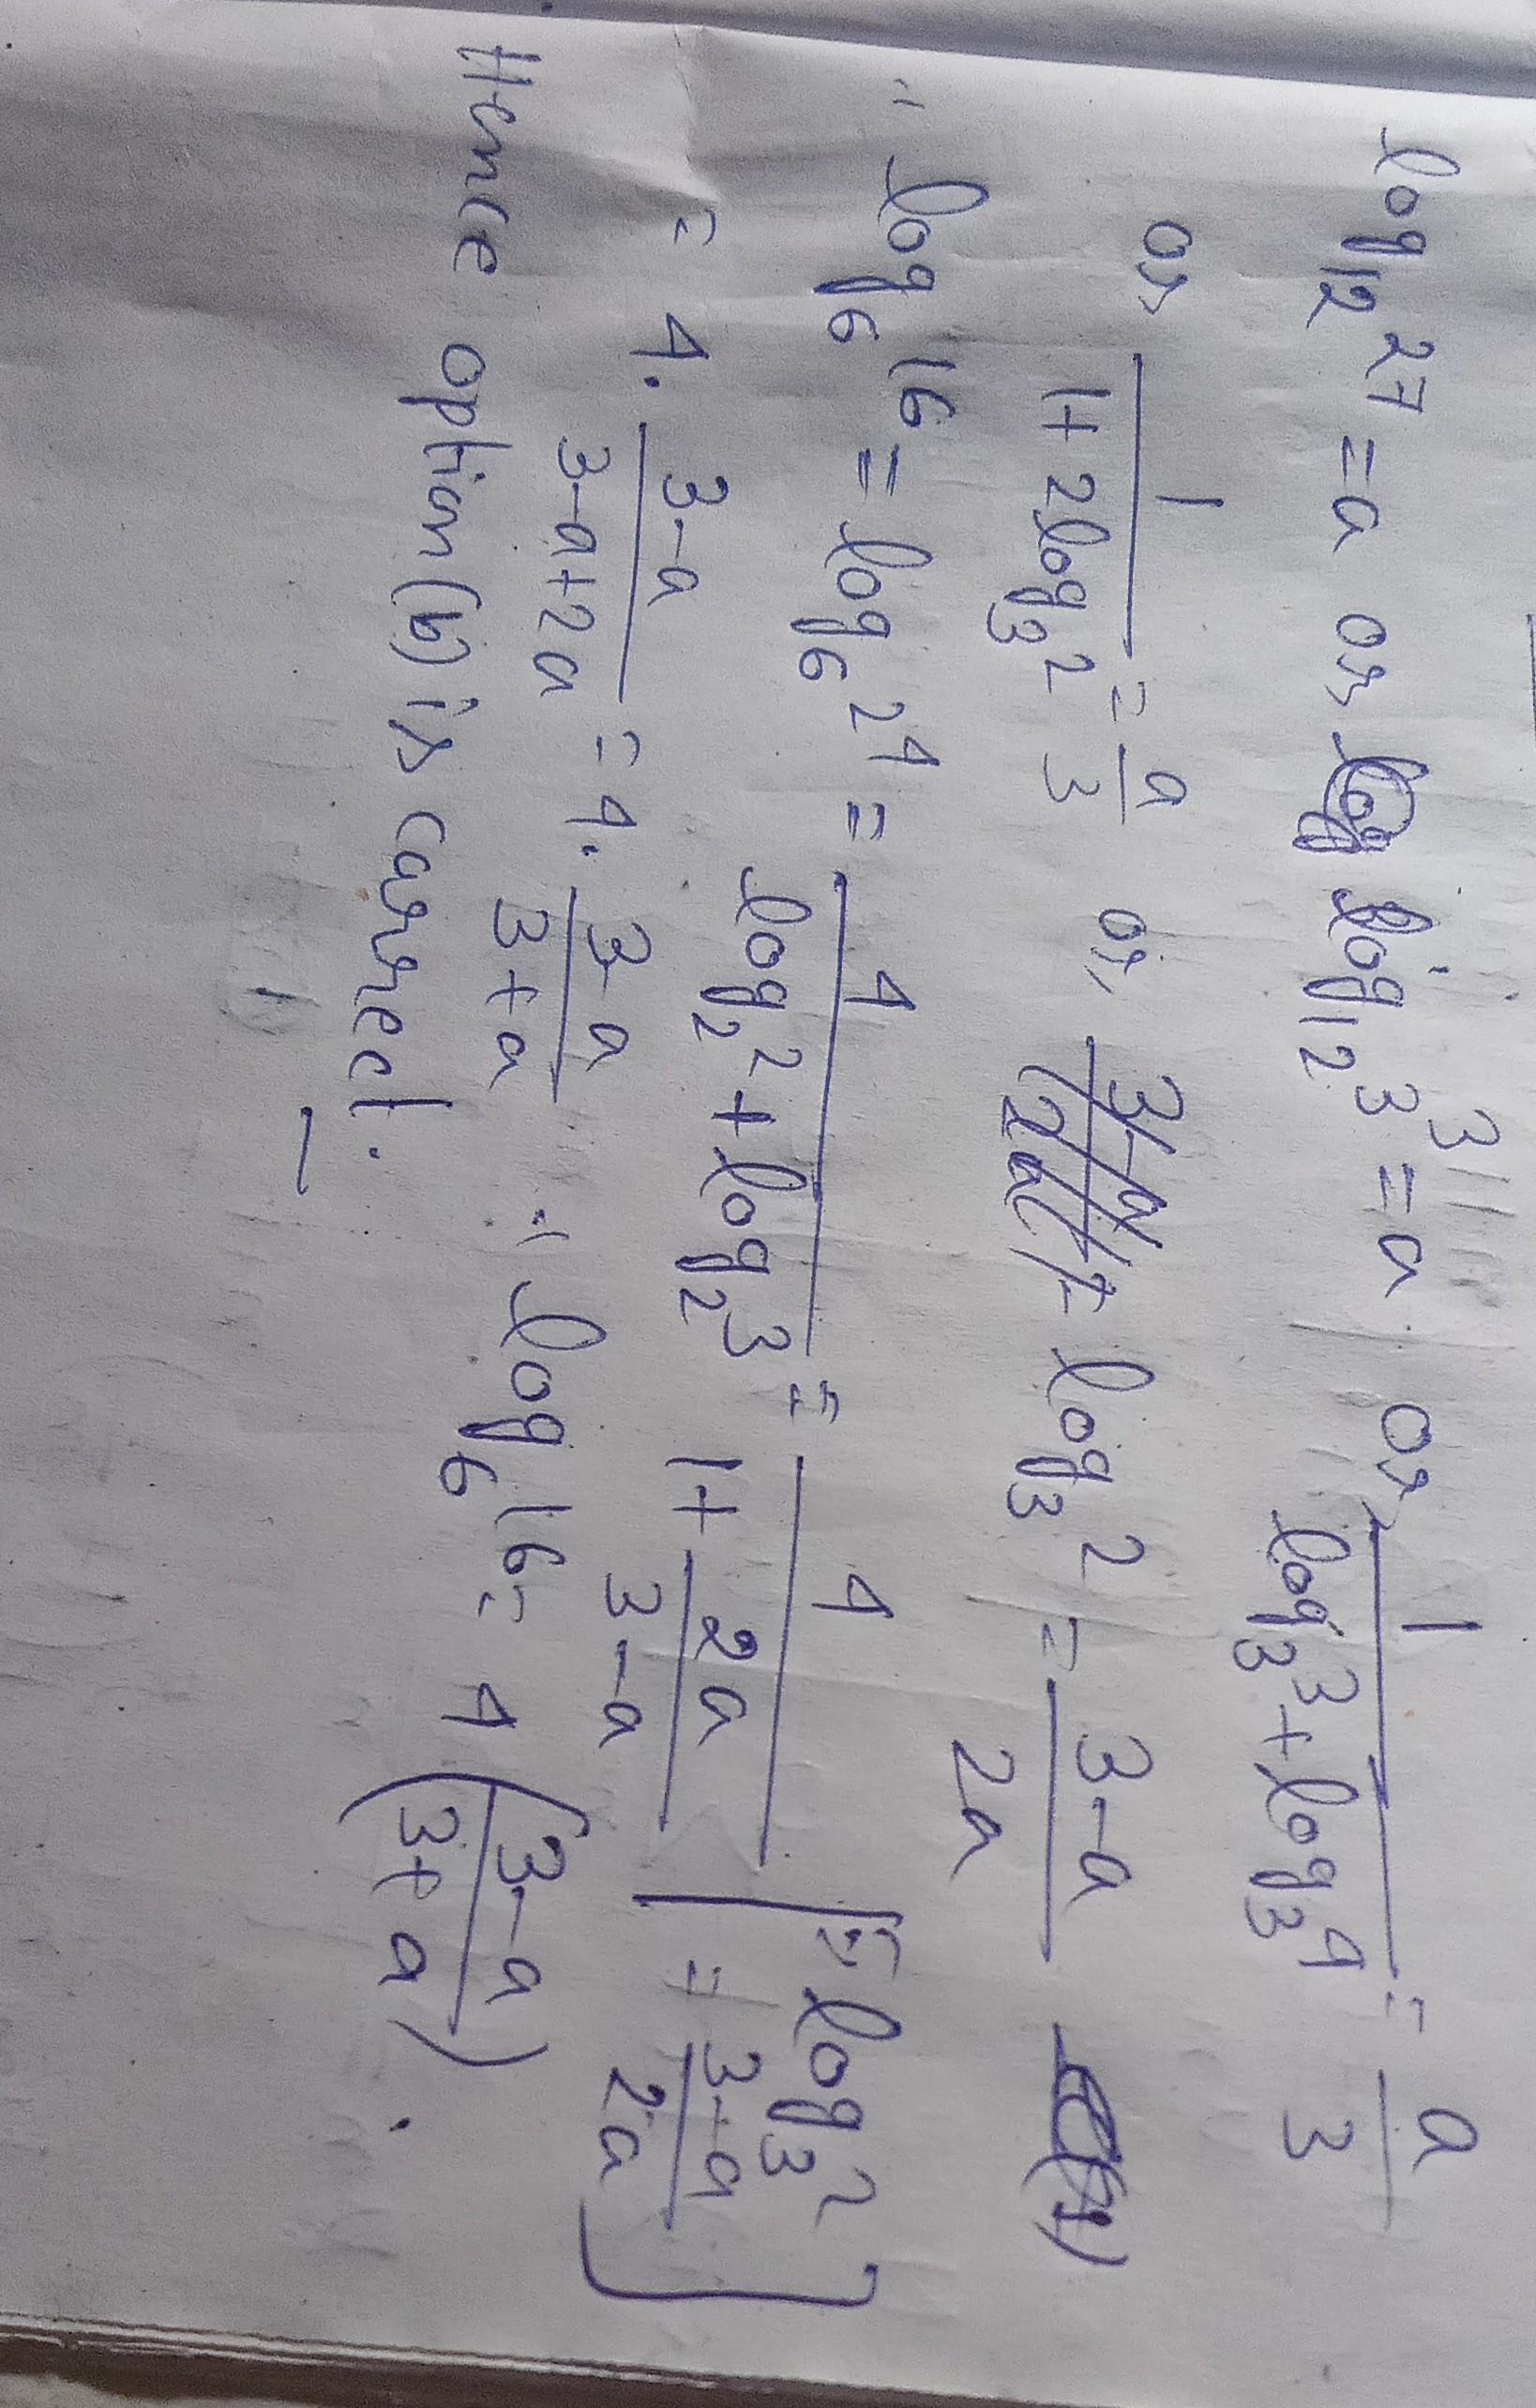 log₁₂27 = a or, log₁₂3³ = a or, 1/(log₃3 + log₃4) = a/3
or, 1/(1+2log₃2) = a/3 or, log₃2 = (3-a)/2a (1)
∴ log₆16 = log₆2⁴ = 4/(log₂2 + log₂3) = 4/(1 + 2a/(3-a)) [∵ log₃2 = (3-a)/2a]
= 4. (3-a)/(3-a+2a) = 4. (3-a)/(3+a) ∴ log₆16 = 4((3-a)/(3+a)).
Hence option (b) is correct.